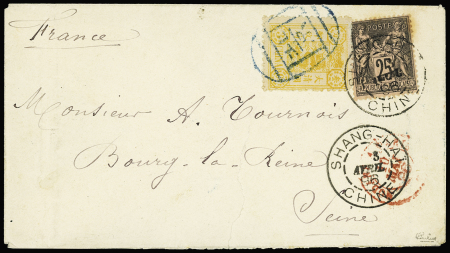 France
POSTE
25
CHINE
Monsieur A. Tournois
Bourg-la-Reine
SHANG-HAI
5
AVRIL
CHINE
Seine